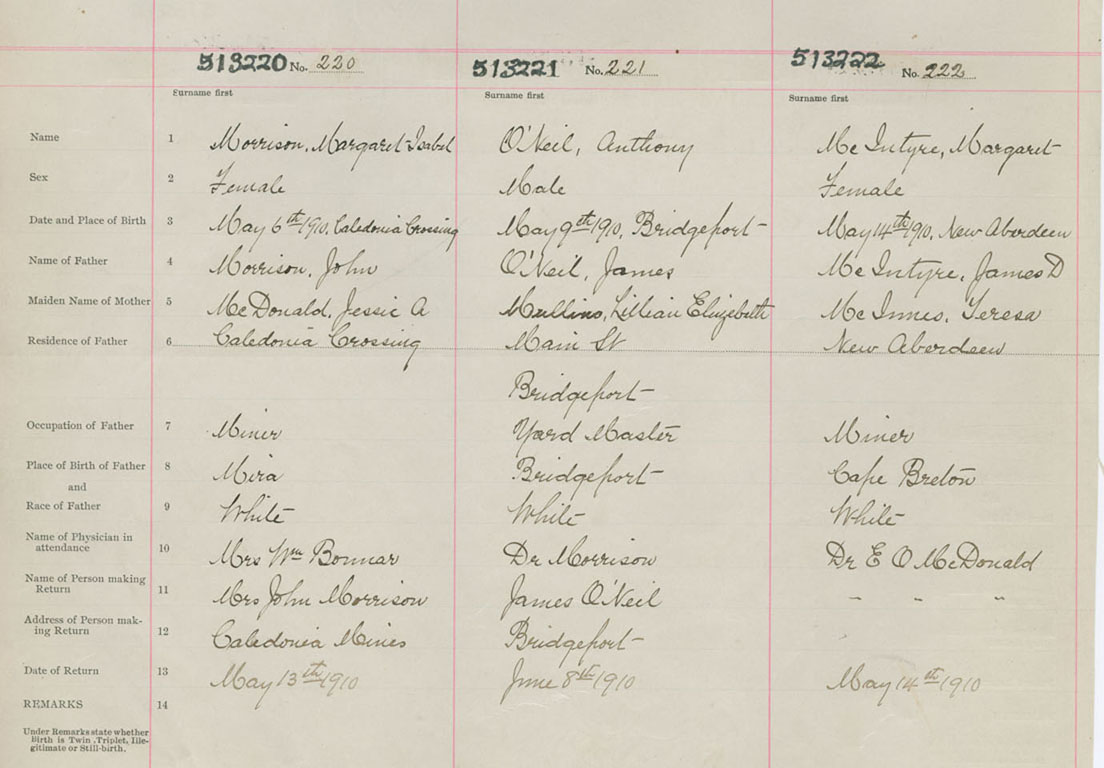 513220 No. 220 513221 No. 221 513222 No. 222
Surname first Surname first Surname first
Name 1 Morrison, Margaret Isabel O'Neil, Anthony Mc Intyre, Margaret
Sex 2 Female Male Female
Date and Place of Birth 3 May 6th 1910, Caledonia Crossing May 9th 1910, Bridgeport May 14th 1910, New Aberdeen
Name of Father 4 Morrison, John O'Neil, James Mc Intyre, James D
Maiden Name of Mother 5 McDonald, Jessie A Mullins, Lillian Elizebeth Mc Innes, Teresa
Residence of Father 6 Caledonia Crossing Main St New Aberdeen
Bridgeport
Occupation of Father 7 Miner Yard Master Miner
Place of Birth of Father 8 Mira Bridgeport Cape Breton
and
Race of Father 9 White White White
Name of Physician in
attendance 10 Mrs Wm Bonnar Dr Morrison Dr E O McDonald
Name of Person making
Return 11 Mrs John Morrison James O'Neil " " "
Address of Person mak-
ing Return 12 Caledonia Mines Bridgeport
Date of Return 13 May 13th 1910 June 8th 1910 May 14th 1910
REMARKS 14
Under Remarks state whether
Birth is Twin, Triplet, Ille-
gitimate or Still-birth.